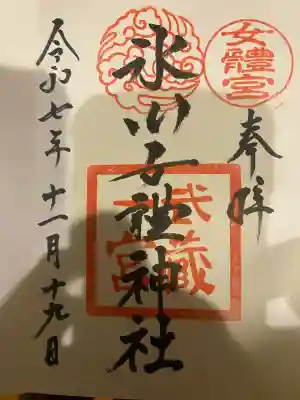 女體宮
奉拜
氷川女體神社
武藏
一宮
令和七年十一月十九日